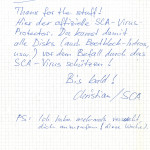 Thanx for the stuff!
Hier der offizielle SCA-Virus
Protector. Du kannst damit
alle Disks (und Bootblock-Intros,
usw.) vor dem Befall durch das
SCA-Virus schützen!
Bis bald!
Christian / SCA
PS: Ich habe mehrmals versucht,
dich